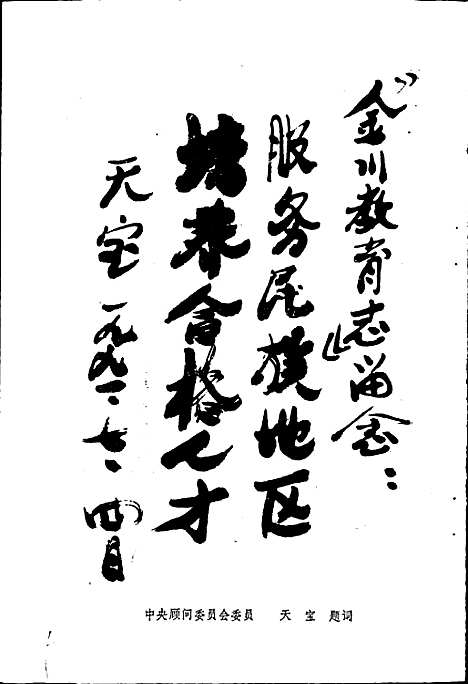 《金川教育志》留念：
服务民族地区
培养合格人才
天宝 一九九一·七·四日
中央顾问委员会委员 天宝 题词